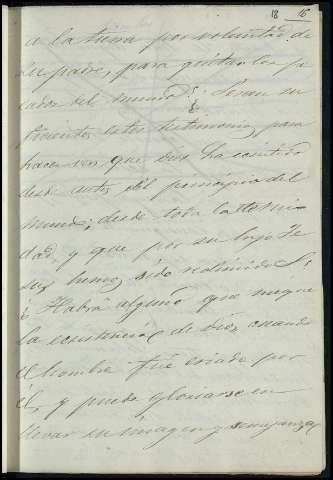 18 16
a la tierra por voluntad de
su padre, para quitar los pe
cados del mundo? ¿Seran su
ficientes estos testimonios para
hacer ver que Dios ha existido
desde antes del principio del
mundo; desde toda la eterni
dad, y que por su hijo Je
sus hemos sido redimidos?
¿Habrá alguno que niegue
la ecsistencia de Dios, cuando
el hombre fué criado por
él, y puede gloriarse en
llevar su imagen y semejanza